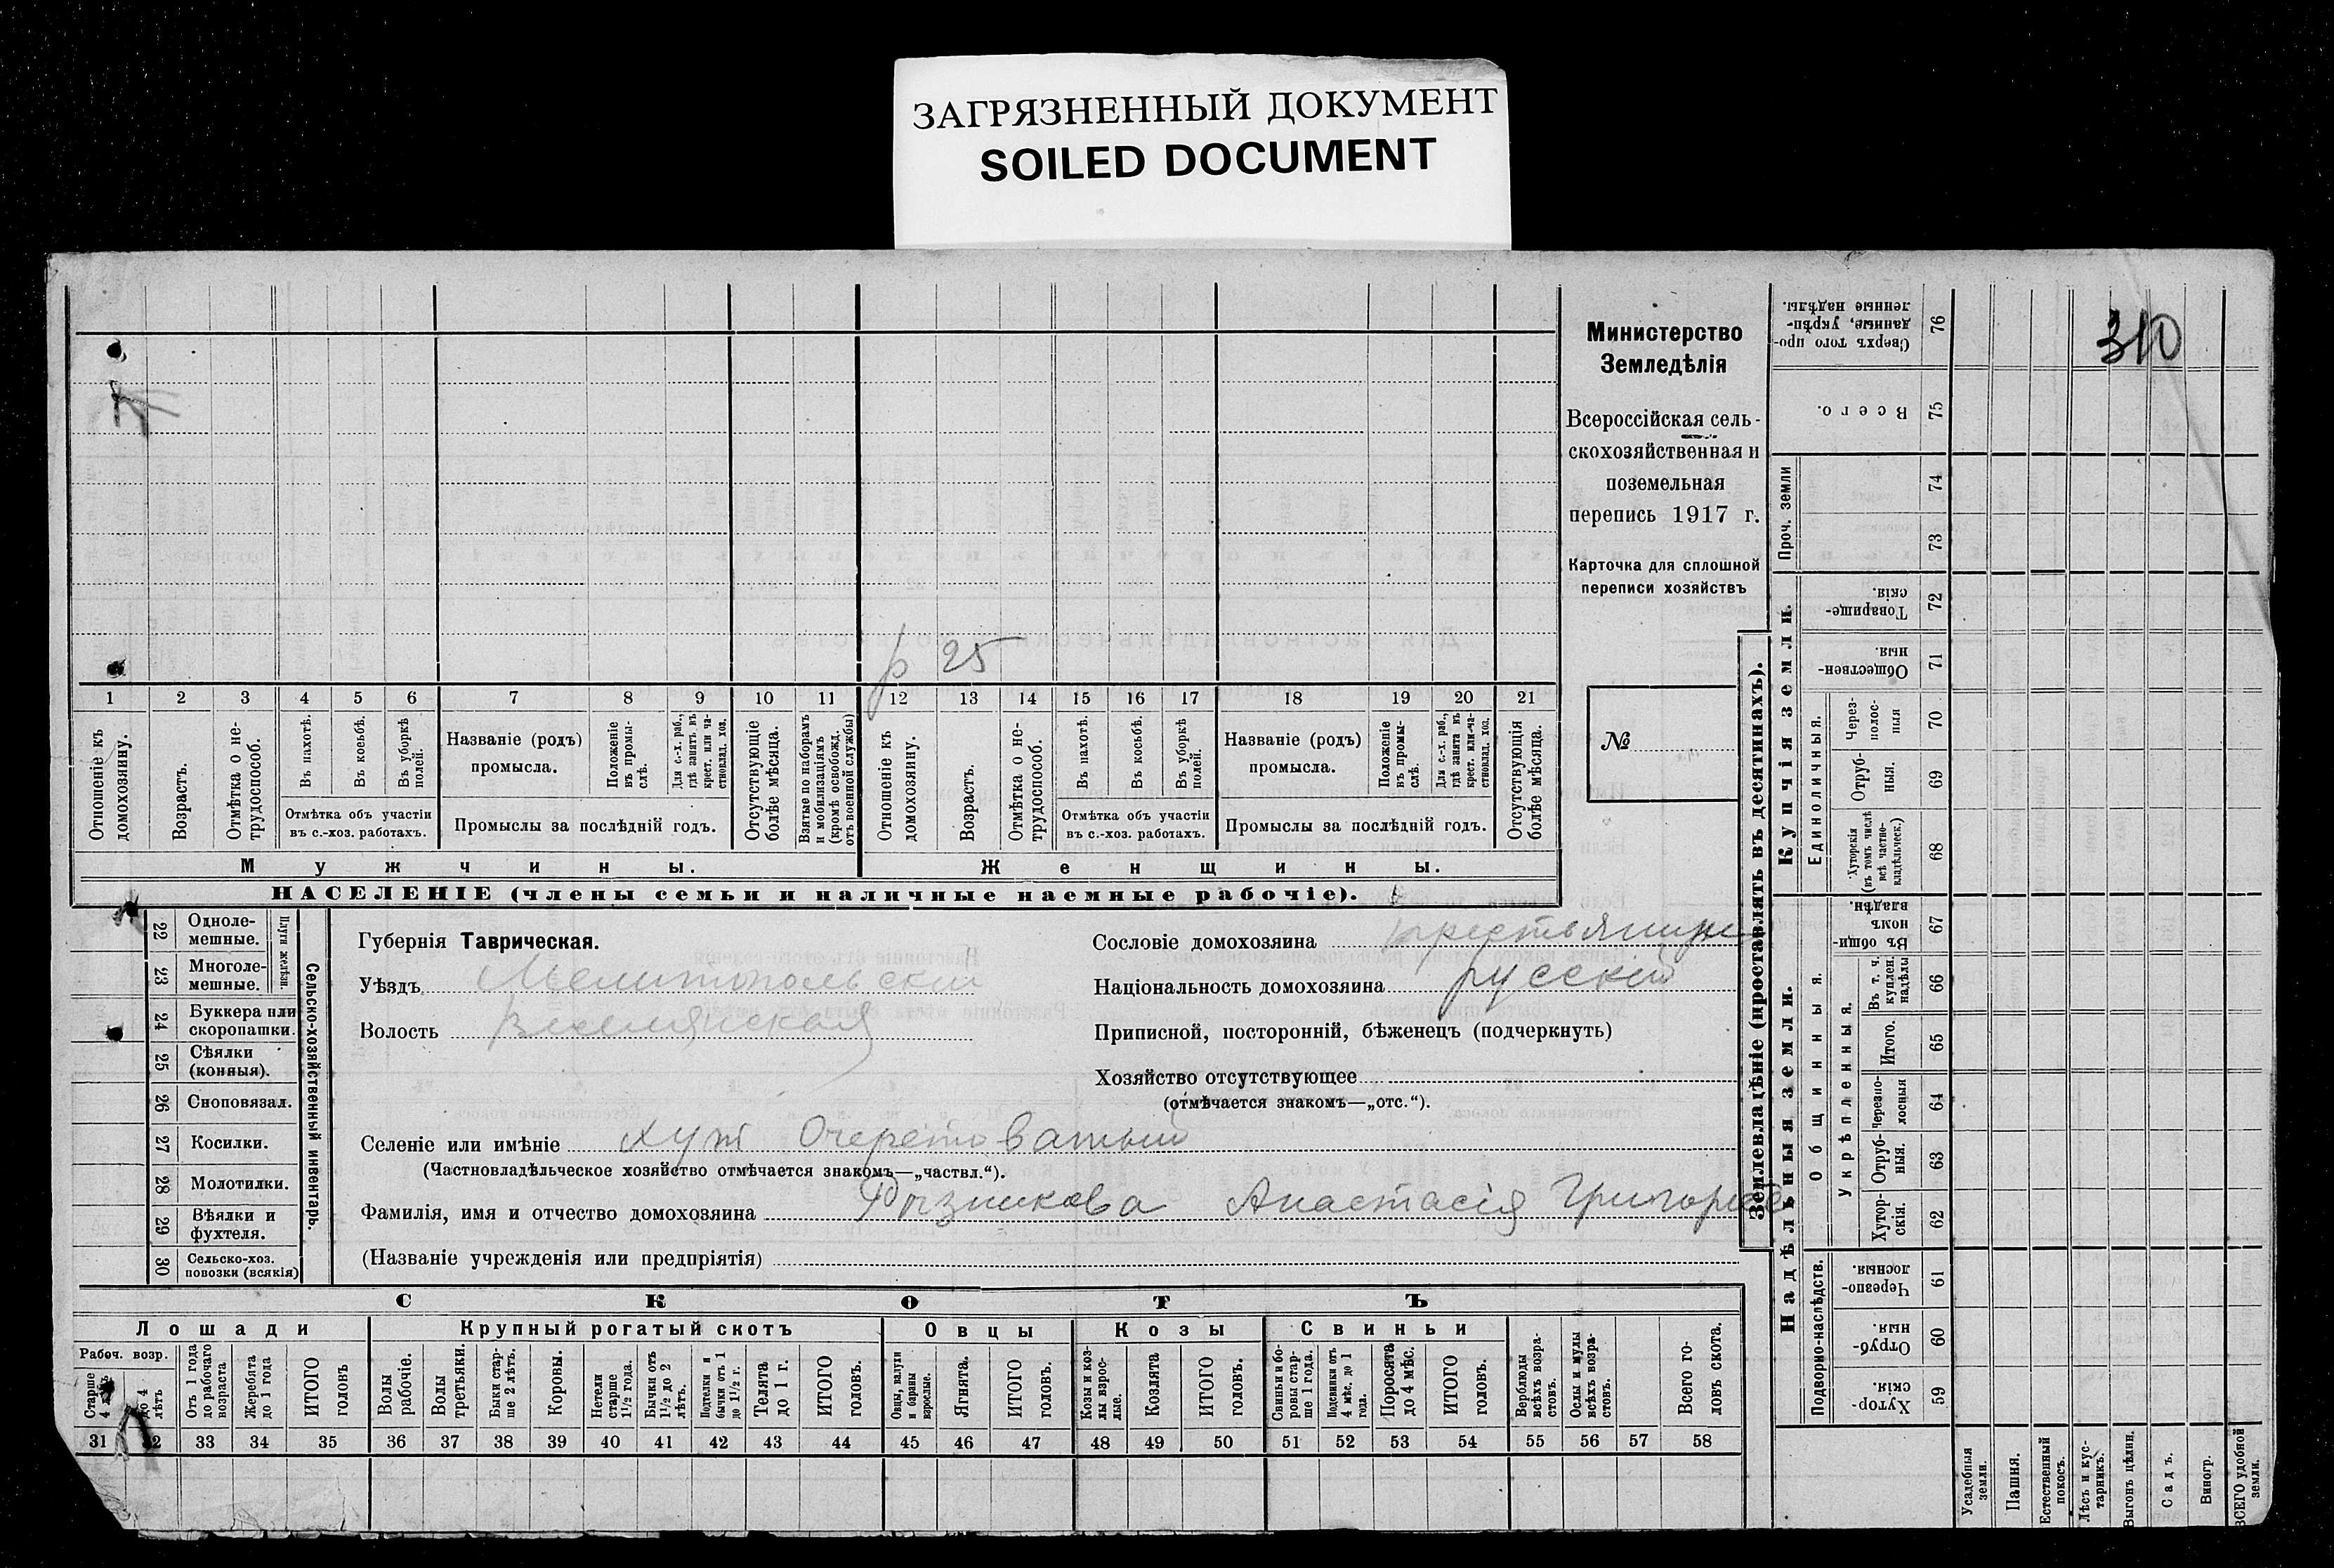 ЗАГРЯЗНЕННЫЙ ДОКУМЕНТ
SOILED DOCUMENT
310
Министерство
Земледѣлія
Всероссійская сель-
скохозяйственная и
поземельная
перепись 1917 г.
Карточка для сплошной
переписи хозяйствъ
№
р 25
1 2 3 4 5 6 7 8 9 10 11 12 13 14 15 16 17 18 19 20 21
Отношеніе къ домохозяину.
Возрастъ.
Отмѣтка о не-трудоспособ.
Въ пахотѣ.
Въ косьбѣ.
Въ уборкѣ полей.
Отмѣтка объ участіи
въ с.-хоз. работахъ.
Названіе (родъ)
промысла.
Положеніе въ промы-слѣ.
Для с.-х. раб., гдѣ занятъ въ крест. или ча-стновлад. хоз.
Промыслы за послѣдній годъ.
Отсутствующіе болѣе мѣсяца.
Взятые по наборамъ и мобилизаціямъ (кромѣ освобожд. отъ военной службы)
Отношеніе къ домохозяину.
Возрастъ.
Отмѣтка о не-трудоспособ.
Въ пахотѣ.
Въ косьбѣ.
Въ уборкѣ полей.
Отмѣтка объ участіи
въ с.-хоз. работахъ.
Названіе (родъ)
промысла.
Положеніе въ промы-слѣ.
Для с.-х. раб., гдѣ занята въ крест. или ча-стновлад. хоз.
Промыслы за послѣдній годъ.
Отсутствующія болѣе мѣсяца.
Мужчины.
Женщины.
НАСЕЛЕНІЕ (члены семьи и наличные наемные рабочіе).
22 Одноле-мешные.
23 Многоле-мешные.
Плуги желѣзн.
24 Буккера или скоропашки.
25 Сѣялки (конныя).
26 Сноповязал.
27 Косилки.
28 Молотилки.
29 Вѣялки и фухтеля.
30 Сельско-хоз. повозки (всякія)
Сельско-хозяйственный инвентарь.
Губернія Таврическая.
Уѣздъ Мелитопольскій
Волость
Сословіе домохозяина крестьянин
Національность домохозяина русскій
Приписной, посторонній, бѣженецъ (подчеркнуть)
Хозяйство отсутствующее
(отмѣчается знакомъ—„отс.“).
Селеніе или имѣніе хут Очеретоватый
(Частновладѣльческое хозяйство отмѣчается знакомъ—„частвл.“).
Фамилія, имя и отчество домохозяина Рызникова Анастасія
(Названіе учрежденія или предпріятія)
СКОТЪ
Лошади
Крупный рогатый скотъ
Овцы
Козы
Свиньи
Рабоч. возр.
Старше 4 лѣтъ
до 4 лѣтъ
Отъ 1 года до рабочаго возраста
Жеребята до 1 года
ИТОГО головъ
Волы рабочіе.
Волы третьяки.
Быки стар-ше 2 лѣтъ.
Коровы.
Нетели старше 1½ года.
Бычки отъ 1½ до 2 лѣтъ.
Подтелки и бычки отъ 1 до 1½ г.
Телята до 1 г.
ИТОГО головъ.
Овцы, валухи и бараны взрослые.
Ягнята.
ИТОГО головъ.
Козы и коз-лы взрос-лые.
Козлята
ИТОГО головъ.
Свиньи и бо-ровы стар-ше 1 года.
Подсвинки отъ 4 мѣс. до 1 года.
Поросята до 4 мѣс.
ИТОГО головъ.
Верблюды всѣхъ возра-стовъ.
Ослы и мулы всѣхъ возра-стовъ.
Всего го-ловъ скота.
31 32 33 34 35 36 37 38 39 40 41 42 43 44 45 46 47 48 49 50 51 52 53 54 55 56 57 58
Землевладѣніе (проставлять въ десятинахъ).
Купчія земли.
Надѣльныя земли.
Сверхъ того про-данные, укрѣп-ленные надѣлы. 76
Всего. 75
Проч. земли
74
73
Товарище-скія. 72
Обществен-ныя. 71
Единоличныя.
Через-полос-ныя 70
Отруб-ныя. 69
Хуторскія (въ томъ числѣ всѣ частно-владѣльческ.) 68
Общинныя.
Въ общин-номъ владѣн. 67
Укрѣпленныя.
Въ т. ч. куплен. надѣлы 66
Итого. 65
Черезпо-лосныя 64
Отруб-ныя. 63
Хутор-скія. 62
Подворно-наслѣдств.
Черезпо-лосныя. 61
Отруб-ныя. 60
Хутор-скія. 59
Усадебныя земли.
Пашня.
Естественный покосъ.
Лѣсъ и кус-тарникъ.
Выгонъ цѣлин.
Садъ.
Виногр.
ВСЕГО удобной земли.